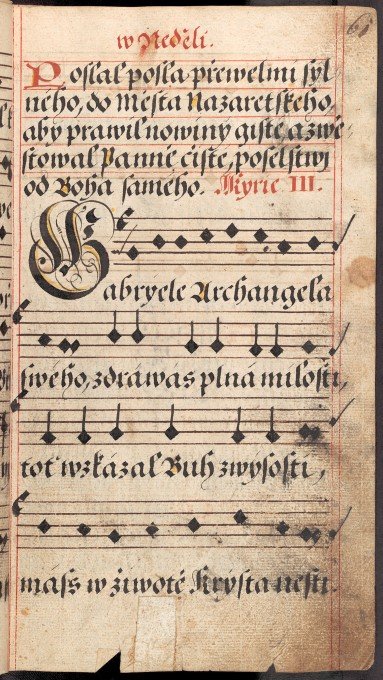 w Neděli.
Poslal posla přewelmi syl
ného, do Města Nazaretského,
aby prawil nowiny gisté, a zwě-
stowal Panně čisté, poselstwj
od Boha samého. Kyrie III.
Gabryele Archangela
swého, zdráwás plná milosti,
toť wzkázal Buh zwysosti,
mášs w žiwotě Krysta nésti.